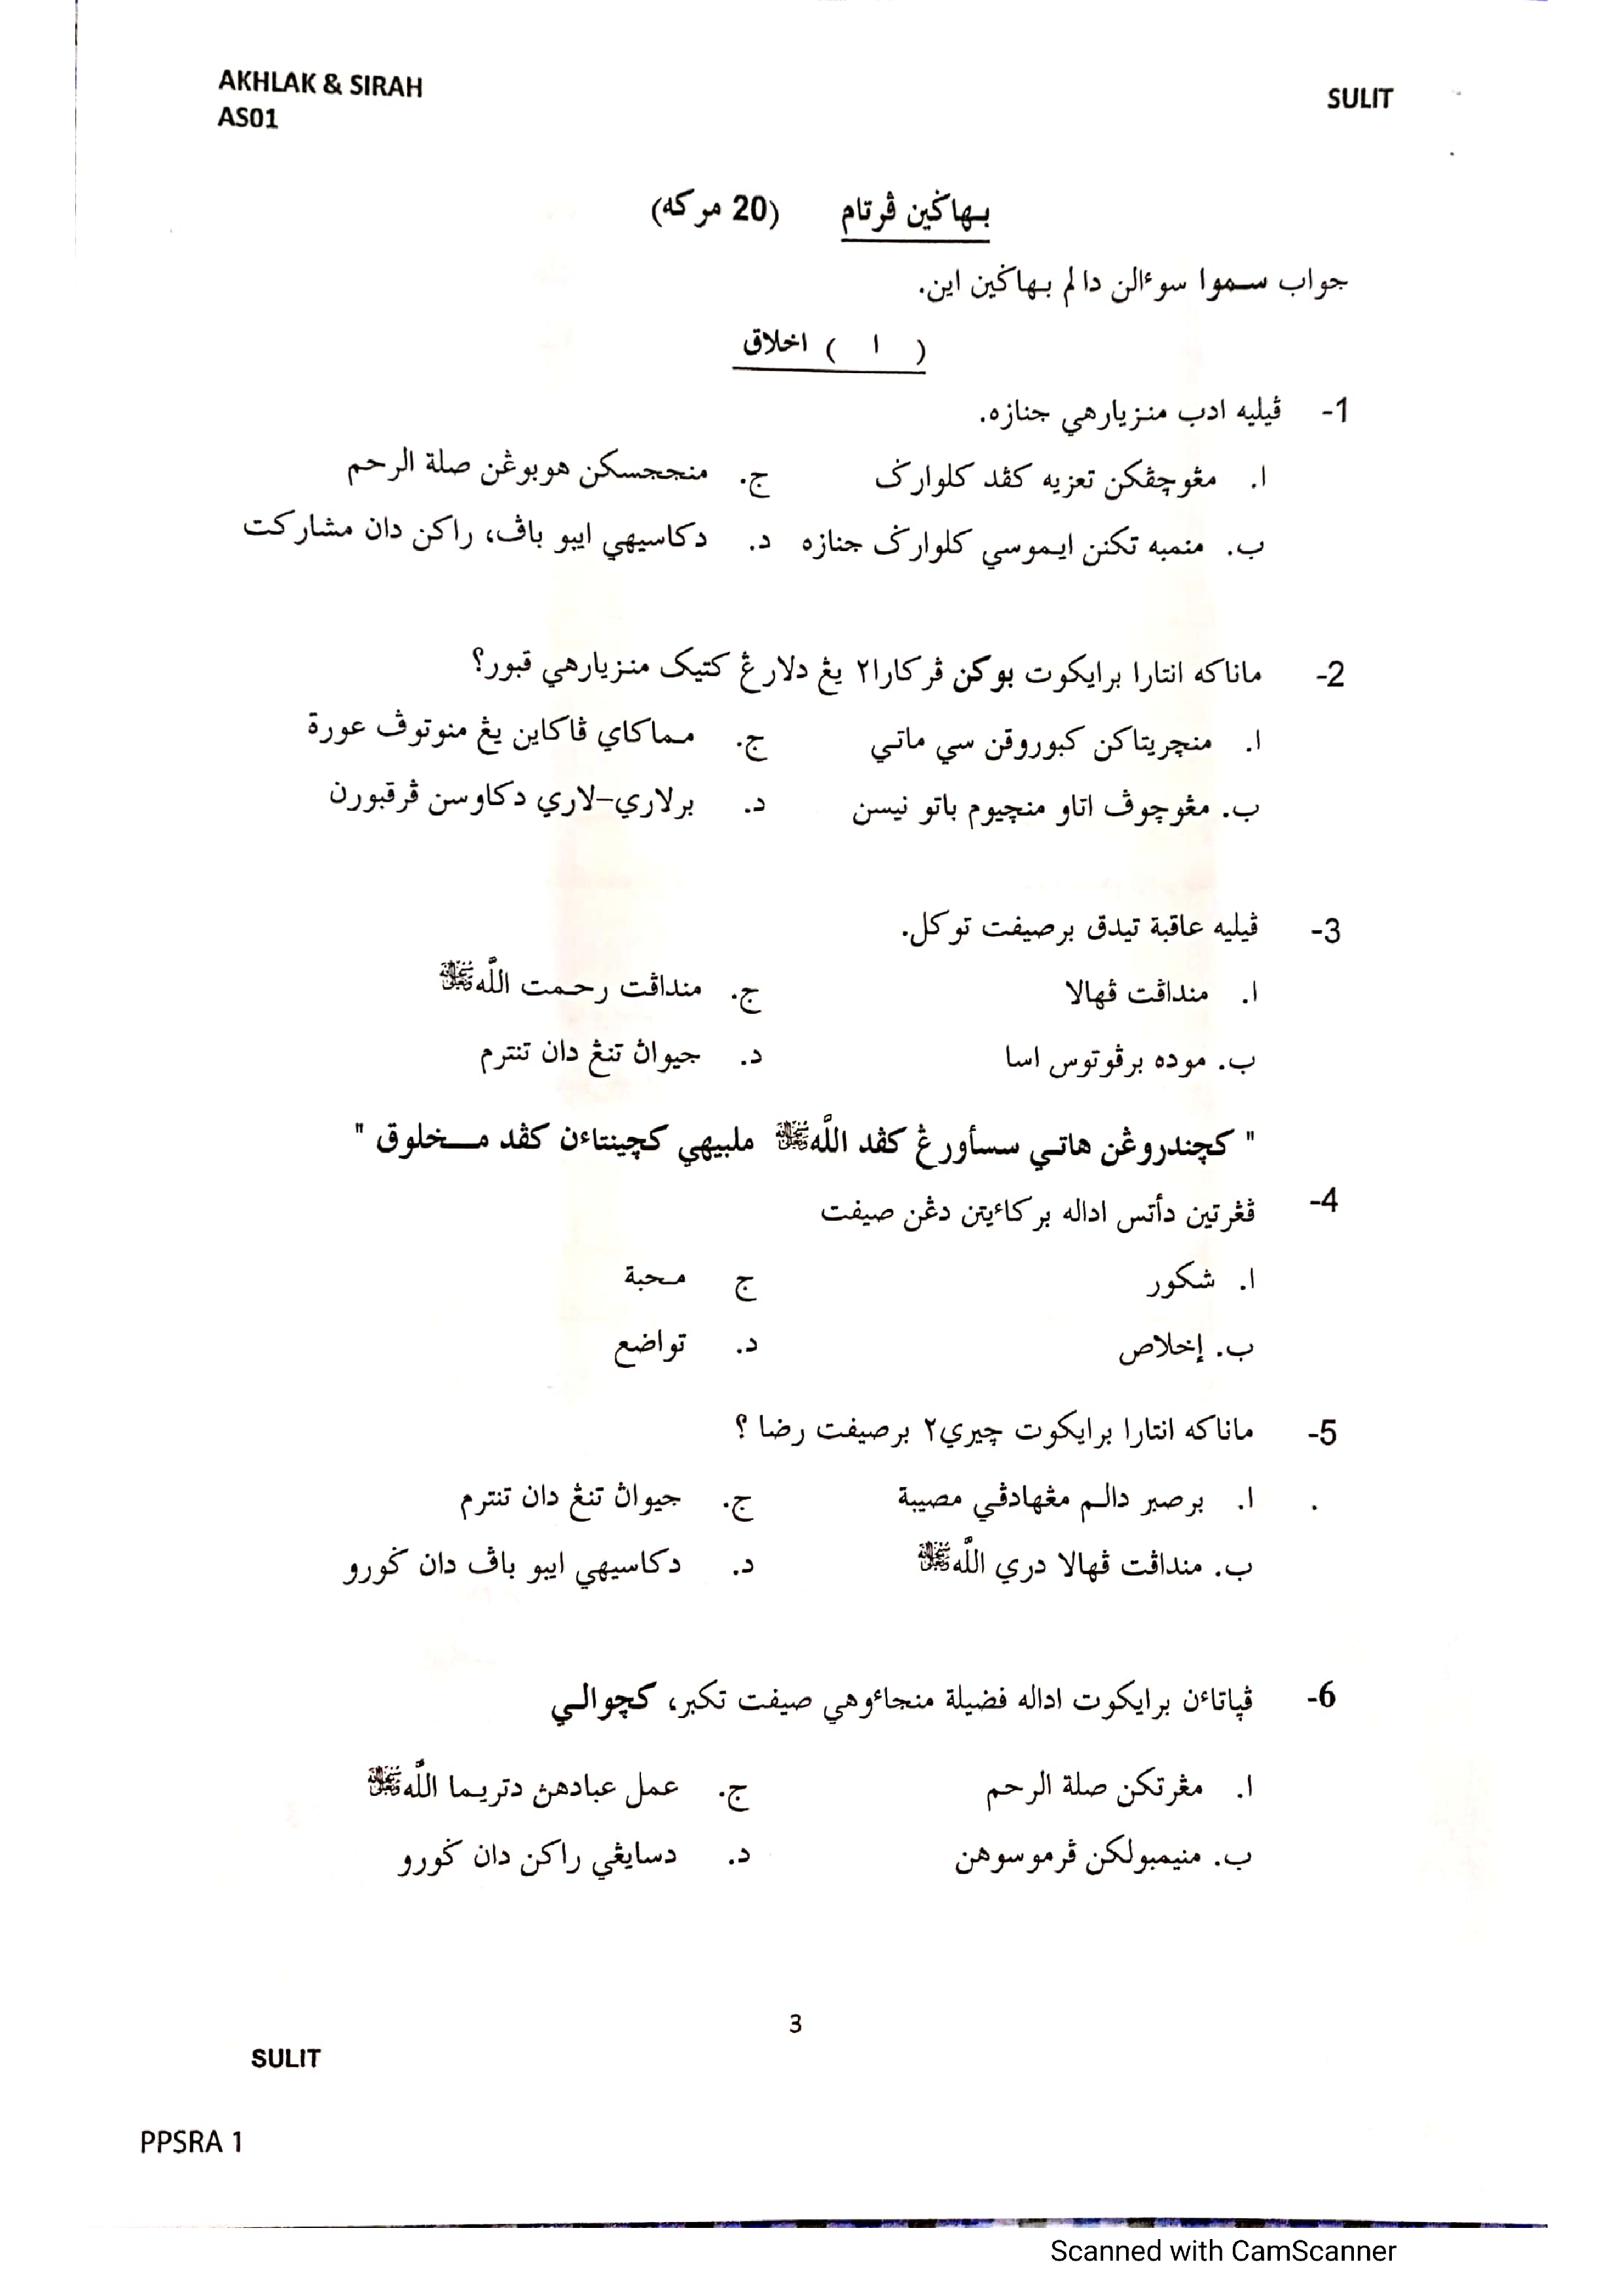 AKHLAK & SIRAH
AS01
SULIT
بهاݢين ڤرتام (20 مركه)
جواب سموا سوءالن دالم بهاݢين اين.
( ا ) اخلاق
1- ڤيليه ادب منزيارهي جنازه.
ا. مڠوچڤكن تعزيه كڤد كلوارݢ ج. منججسكن هوبوڠن صلة الرحم
ب. منمبه تكنن ايموسي كلوارݢ جنازه د. دكاسيهي ايبو باڤ، راكن دان مشاركت
2- ماناكه انتارا برايكوت بوكن ڤركارا٢ يڠ دلارڠ كتيک منزيارهي قبور؟
ا. منچريتاكن كبوروقن سي ماتي ج. مماكاي ڤاكاين يڠ منوتوڤ عورة
ب. مڠوچوڤ اتاو منچيوم باتو نيسن د. برلاري-لاري دكاوسن ڤرقبورن
3- ڤيليه عاقبة تيدق برصيفت توكل.
ا. منداڤت ڤهالا ج. منداڤت رحمت اللّٰه سبحانه وتعالى
ب. موده برڤوتوس اسا د. جيواڽ تنڠ دان تنترم
" كچندروڠن هاتي سسأورڠ كڤد اللّٰه سبحانه وتعالى ملبيهي كچينتاءن كڤد مخلوق "
4- ڤڠرتين دأتس اداله بركاءيتن دڠن صيفت
ا. شكور ج محبة
ب. إخلاص د. تواضع
5- ماناكه انتارا برايكوت چيري٢ برصيفت رضا ؟
ا. برصبر دالم مڠهادڤي مصيبة ج. جيواڽ تنڠ دان تنترم
ب. منداڤت ڤهالا دري اللّٰه سبحانه وتعالى د. دكاسيهي ايبو باڤ دان ݢورو
6- ڤڽاتاءن برايكوت اداله فضيلة منجاءوهي صيفت تكبر، كچوالي
ا. مڠرتكن صلة الرحم ج. عمل عبادهڽ دتريما اللّٰه سبحانه وتعالى
ب. منيمبولكن ڤرموسوهن د. دسايڠي راكن دان ݢورو
3
SULIT
PPSRA 1
Scanned with CamScanner